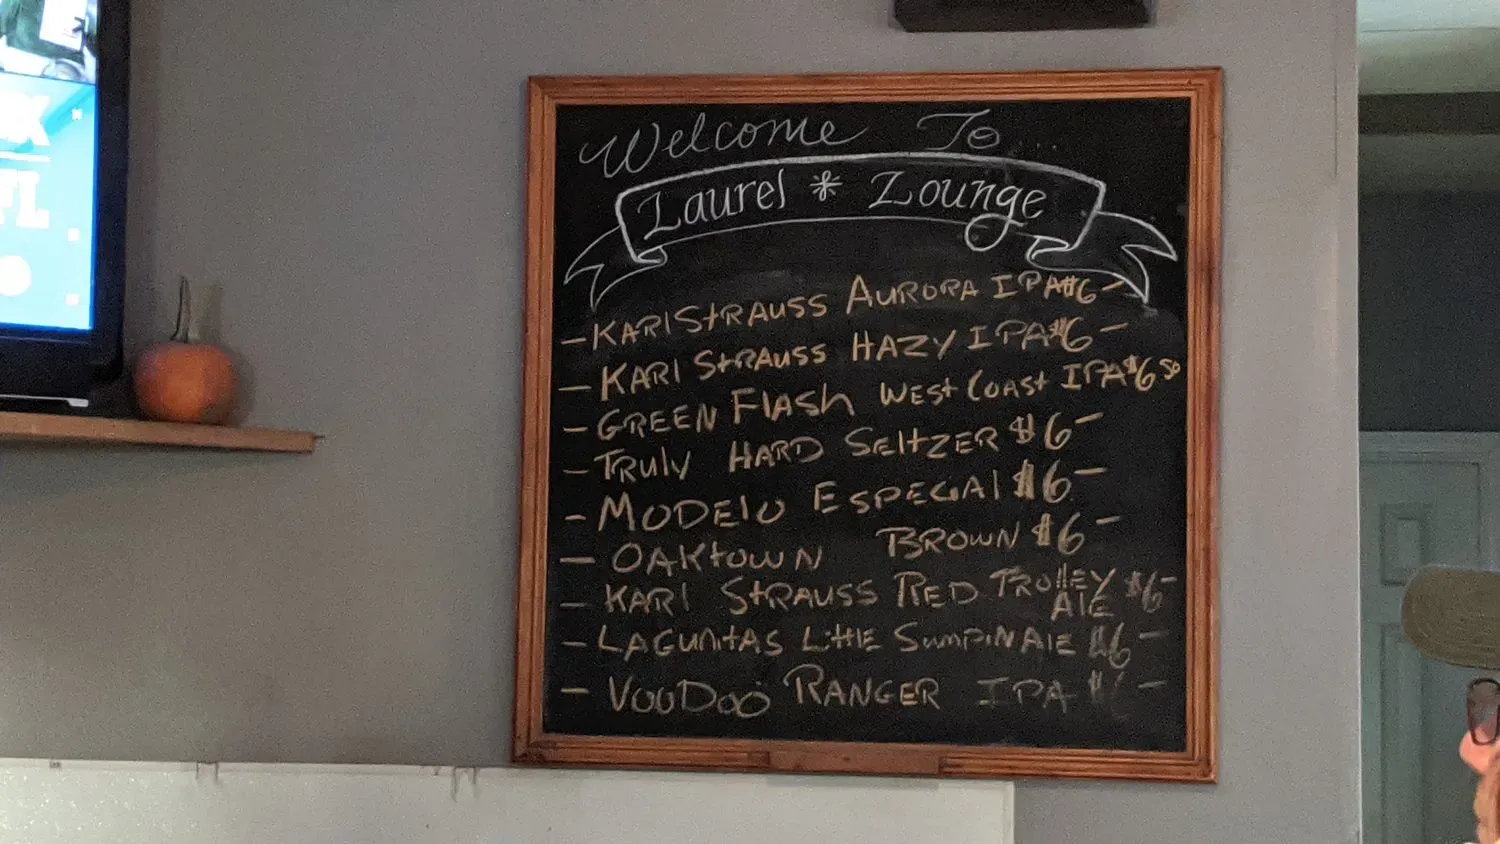 Welcome To...
Laurel * Lounge
- KARl StRAUSS AURORA IPA $6-
- KARl StRAUSS HAZY IPA $6-
- GREEN FlASh WESt COASt IPA $6 50
- TRUly HARD SEltZER $6-
- MODElO ESPECIAl $6-
- OAKtOWN BROWN $6-
- KARl StRAUSS RED TROllEY AlE $6-
- LAGUNItAS LIttlE SUMPIN AlE $6-
- VOODOO RANGER IPA $6-